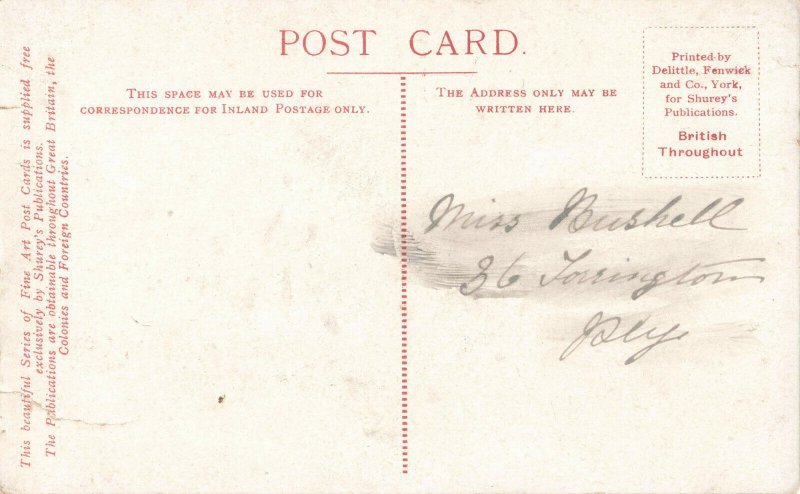 POST CARD.
THIS SPACE MAY BE USED FOR
CORRESPONDENCE FOR INLAND POSTAGE ONLY.
THE ADDRESS ONLY MAY BE
WRITTEN HERE.
Printed by
Delittle, Fenwick
and Co., York,
for Shurey's
Publications.
British
Throughout
This beautiful Series of Fine Art Post Cards is supplied free
exclusively by Shurey's Publications.
The Publications are obtainable throughout Great Britain, the
Colonies and Foreign Countries.
Miss Bushell
36 Torrington